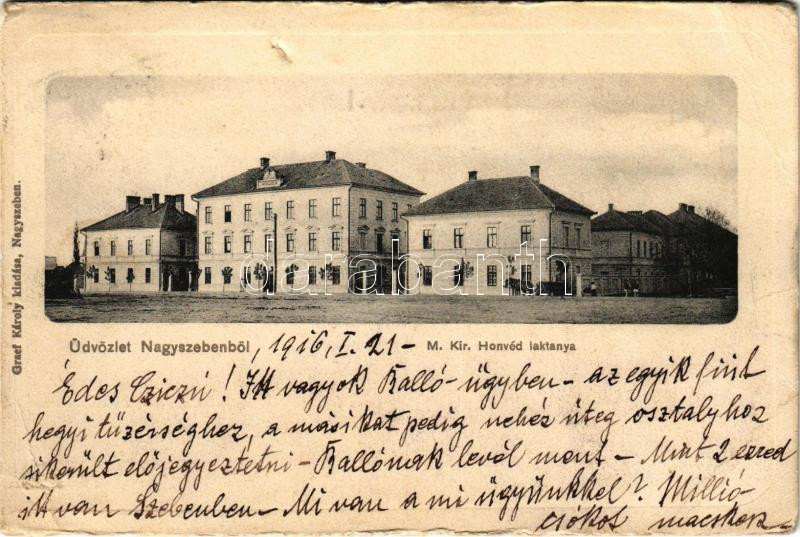 Graef Károly kiadása, Nagyszeben.
darabanth
Üdvözlet Nagyszebenből, 1916, I. 21 –
M. Kir. Honvéd laktanya
Édes Cziczú! Itt vagyok Kalló-ügyben – az egyik fiút
hegyi tüzérséghez, a másikat pedig nehéz üteg osztalyhoz
sikerült előjegyeztetni – Kallónak levél ment – Mint 2 ezred
itt van Szebenben – Mi van a mi ügyünkkel? Millió
csókot